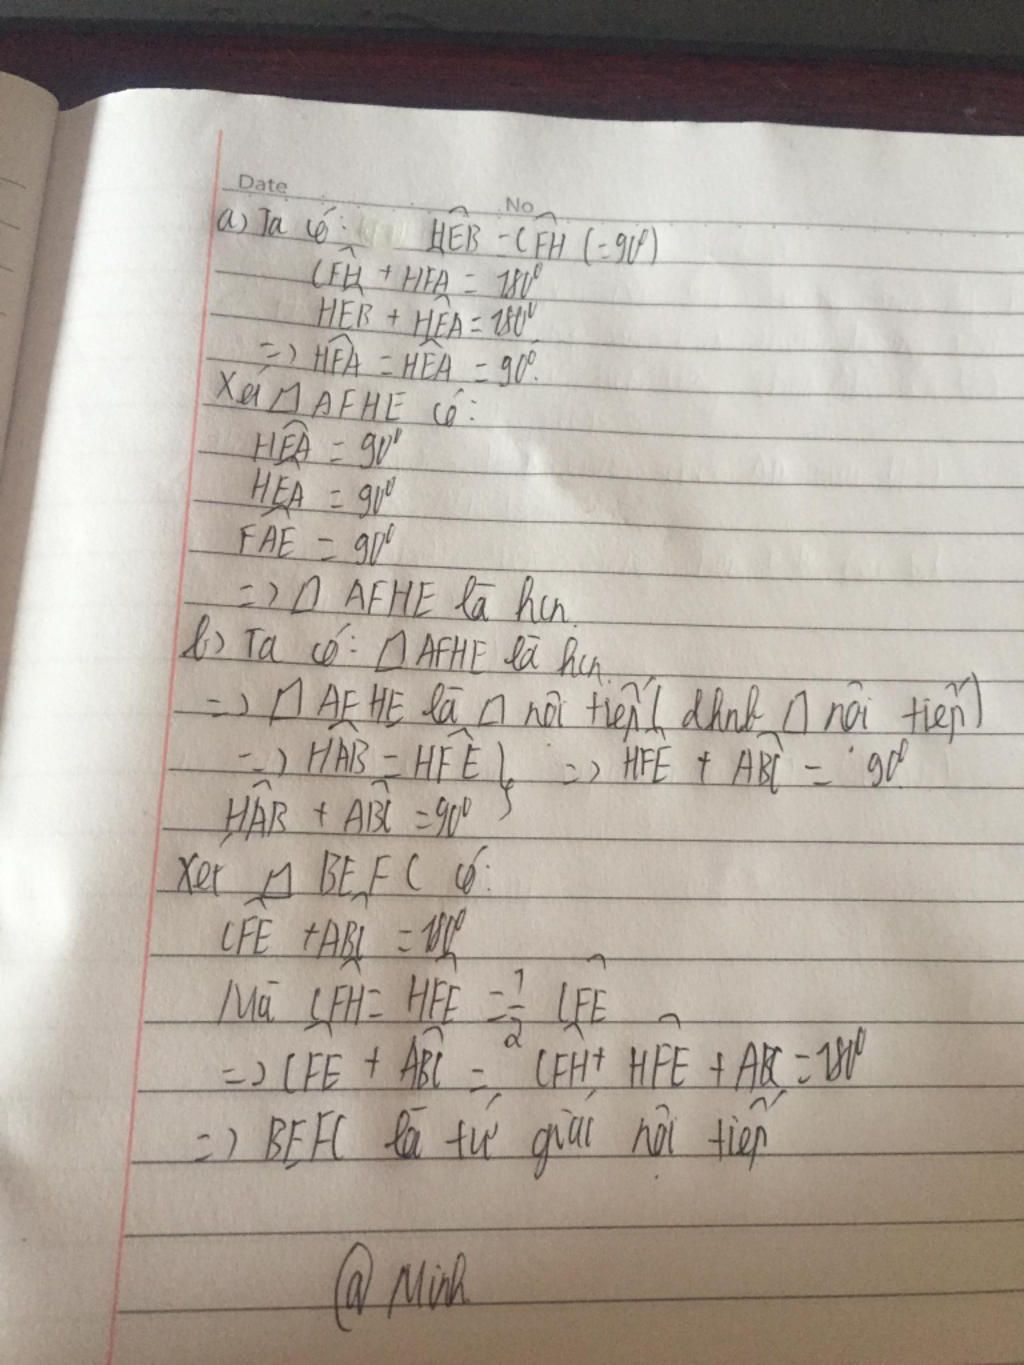 Date
No
a) Ta có: HEB = CFH (= 90⁰)
CFH + HFA = 180⁰
HEB + HEA = 180⁰
=> HFA = HEA = 90⁰.
Xét AFHE có:
HFA = 90⁰
HEA = 90⁰
FAE = 90⁰
=> AFHE là hcn.
b) Ta có: AFHE là hcn.
=> AFHE là nội tiếp (dhnb nội tiếp)
=> HAB = HFE } => HFE + ABC = 90⁰
HAB + ABC = 90⁰
Xét BEFC có:
CFE + ABC = 180⁰
Mà CFH = HFE = 1/2 CFE
=> CFE + ABC = CFH + HFE + ABC = 180⁰
=> BEFC là tứ giác nội tiếp
@ Minh